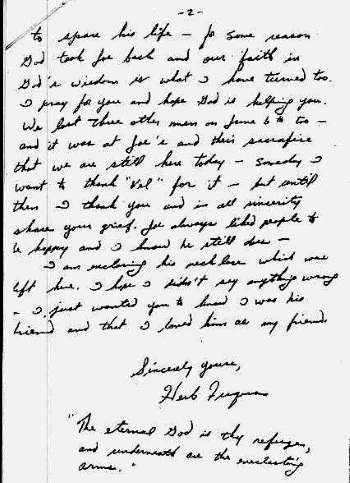 -2-
to spare his life - for some reason
God took Joe back and our faith in
God's wisdom is what I have turned too.
I pray for you and hope God is helping you.
We lost three other men on June 6th too -
and it was at Joe's and their sacrafice
that we are still here today - Someday I
want to thank "Val" for it - but until
then I thank you and in all sincerity
share your grief. Joe always liked people to
be happy and I know he still does -
I am enclosing his necklace which was
left here. I hope I didn't say anything wrong
- I just wanted you to know I was his
friend and that I loved him as my friend
Sincerely yours,
Herb Ferguson
"The eternal God is thy refuge,
and underneath are the everlasting
arms."